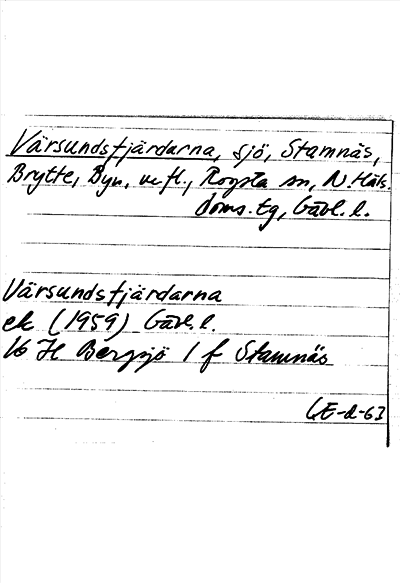 Värsundsfjärdarna, sjö, Stamnäs,
Brytte, Byn, m.fl., Rogsta sn, N. Häls.
doms. tg, Gävl. l.
Värsundsfjärdarna
ek (1959) Gävl. l.
16 H Bergsjö 1 f Stamnäs
LE-d-63